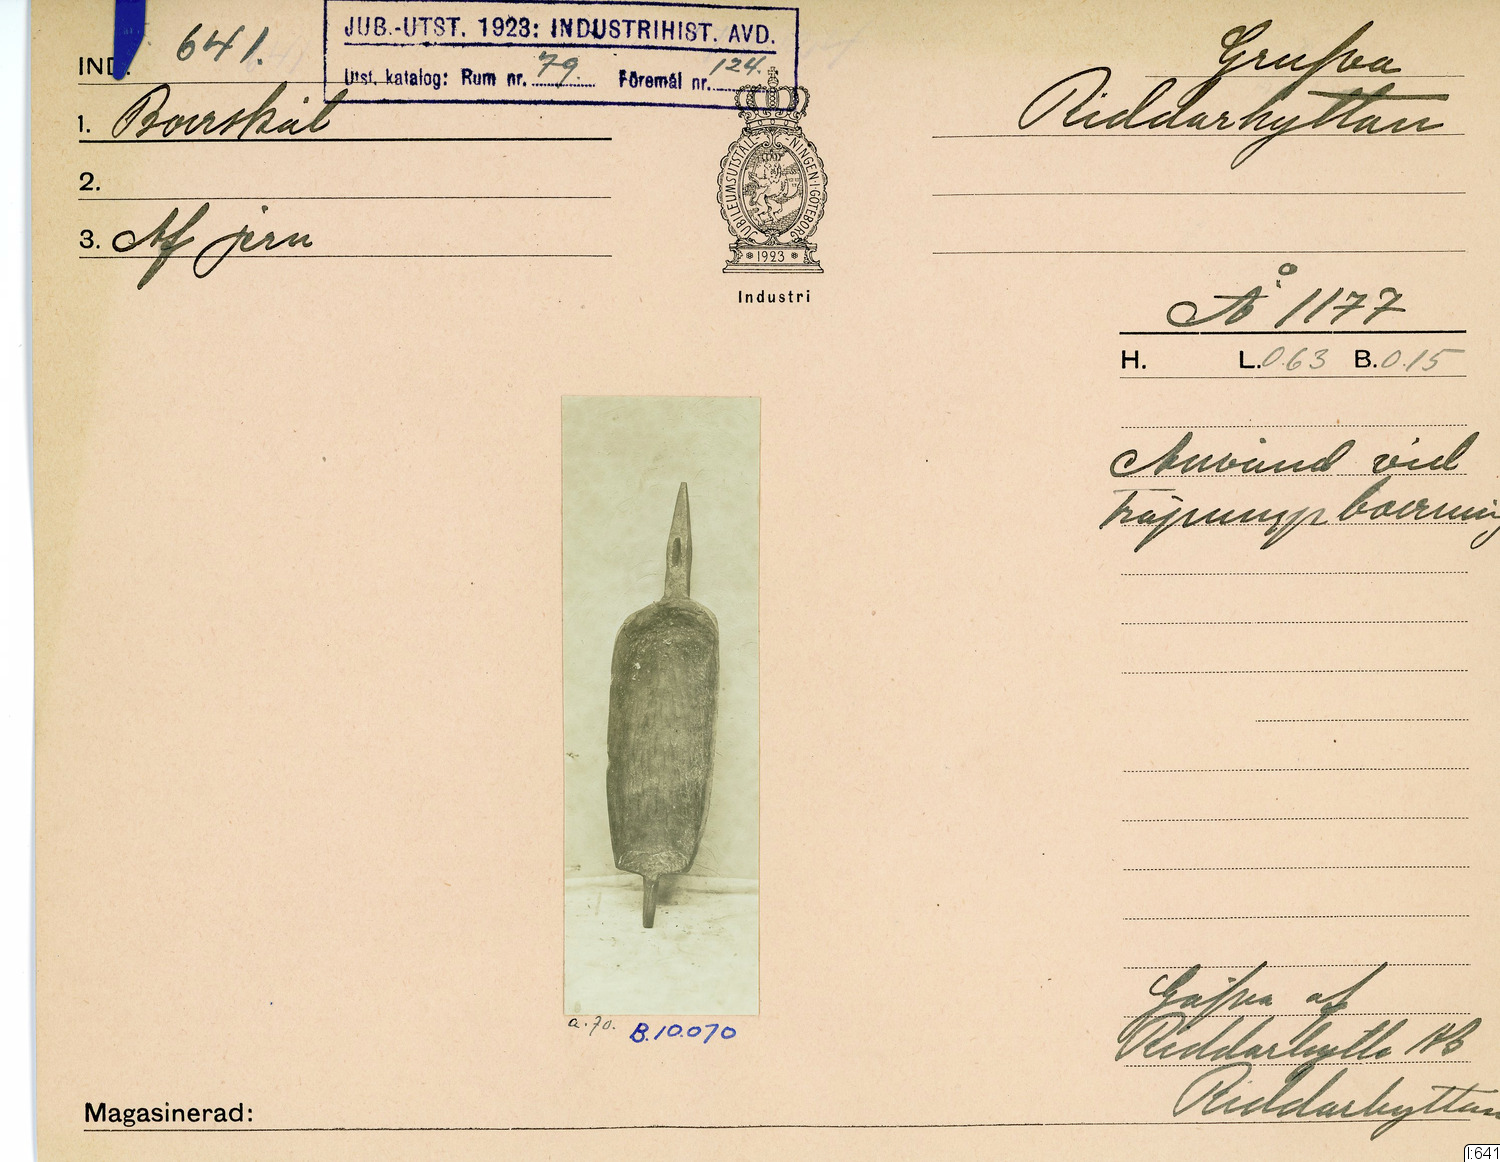 JUB.-UTST. 1923: INDUSTRIHIST. AVD.
Utst. katalog: Rum nr. 79. Föremål nr. 124.
IND. 641.
1. Borrskål
2.
3. Af jern
JUBILEUMSUTSTÄLLNINGEN·I·GÖTEBORG
1923
Industri
Grufva
Riddarhyttan
Å 1177
H. L. 0.63 B. 0.15
Använd vid
Träpumpborrning
a.70. B.10.070
Gåfva af
Riddarhytte AB
Riddarhyttan
Magasinerad:
I:641